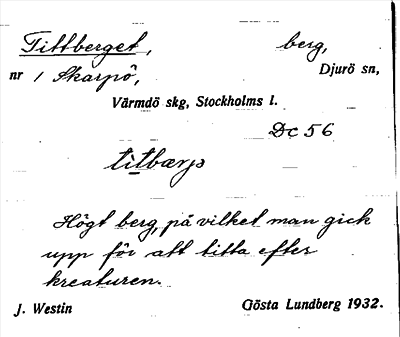 Tittberget, berg,
nr 1 Skarpö, Djurö sn,
Värmdö skg, Stockholms l.
Dc 56
titbærj
Högt berg, på vilket man gick
upp för att titta efter
kreaturen.
J. Westin Gösta Lundberg 1932.